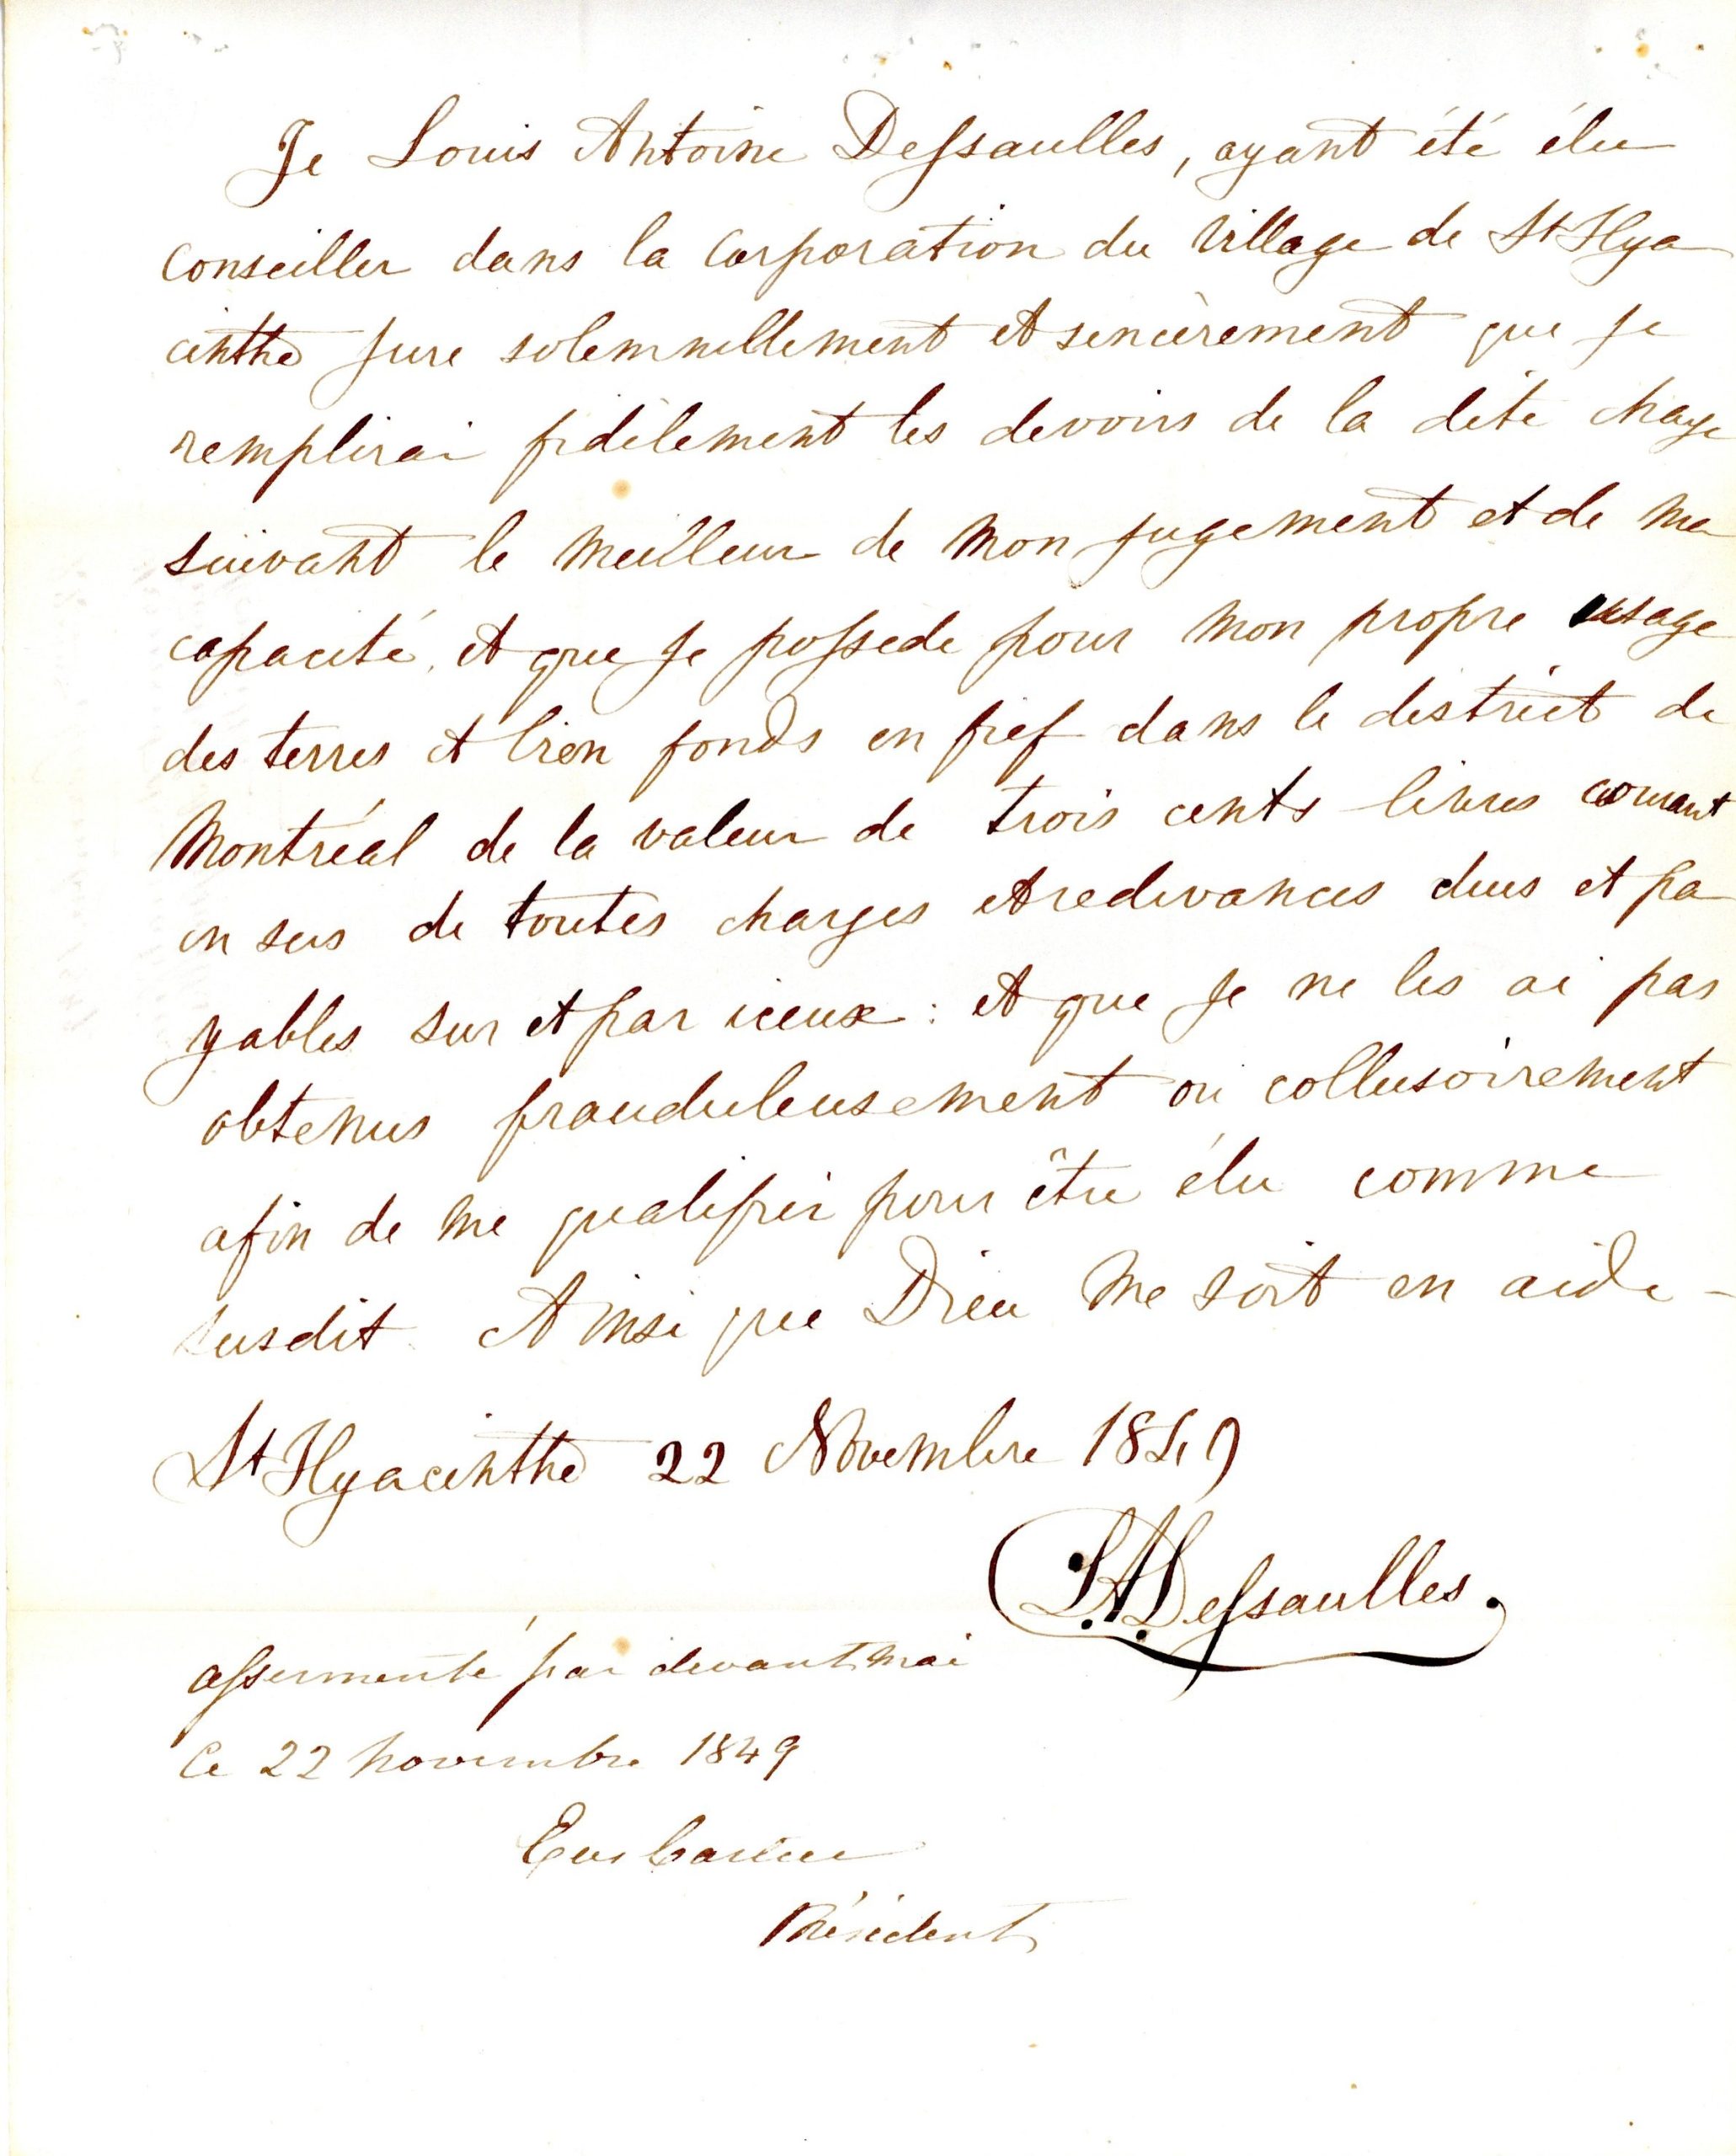 Je Louis Antoine Dessaulles, ayant été élu
conseiller dans la Corporation du Village de St Hya
cinthe jure solemnellement et sincèrement que je
remplirai fidèlement les devoirs de la dite charge
suivant le meilleur de mon jugement et de ma
capacité, et que je possede pour mon propre usage
des terres et bien fonds en fief dans le district de
Montréal de la valeur de trois cents livres courant
en sus de toutes charges et redevances dues et pa
yables sur et par iceux : et que je ne les ai pas
obtenus frauduleusement ou collusoirement
afin de me qualifier pour être élu comme
susdit Ainsi que Dieu me soit en aide -
St Hyacinthe 22 Novembre 1849
L.A. Dessaulles.
assermenté par devant moi
Ce 22 novembre 1849
Président